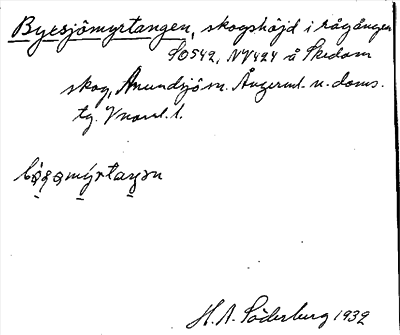 Byesjömyrtangen, skogshöjd i rågången
SO542, NV424 å Skedom
skog, Anundsjö sn. Ångerml. n. doms.
tg. Vnorrl. l.
H. A. Söderberg 1932